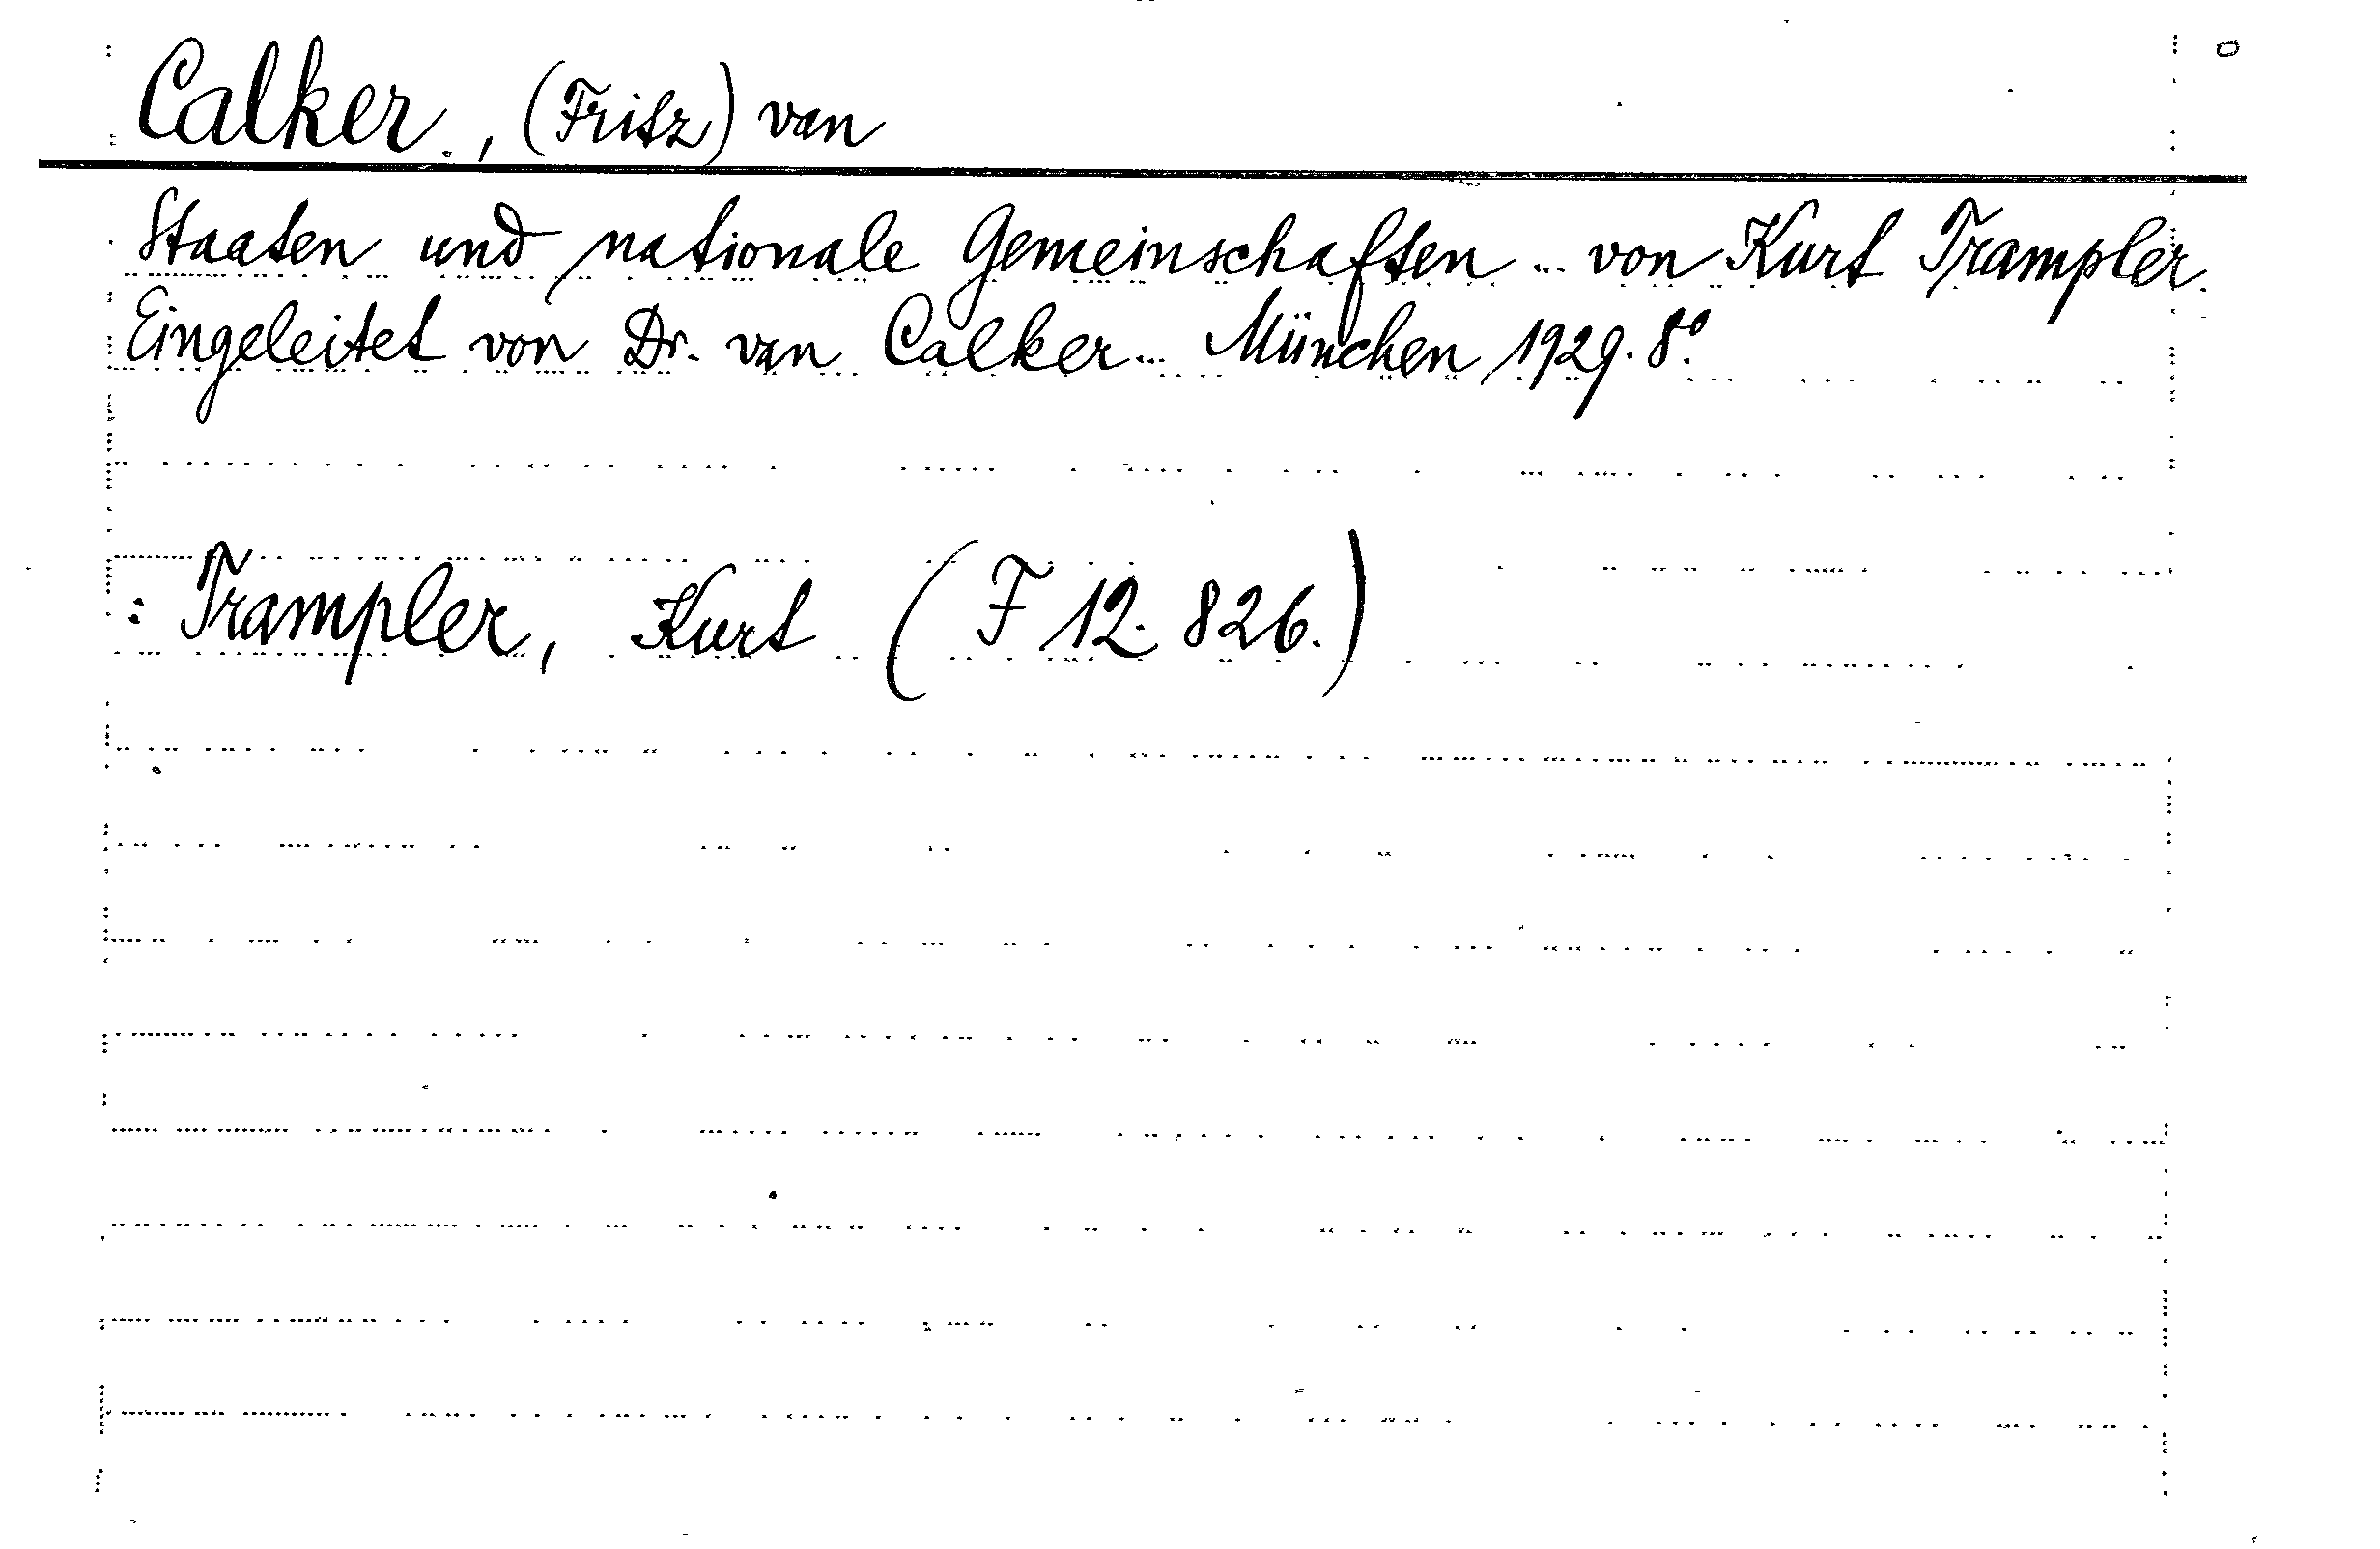 Calker., (Fritz) van
Staaten und nationale Gemeinschaften ... von Kurt Trampler.
Eingeleitet von Dr. van Calker... München 1929. 8°.
: Trampler, Kurt (F 12. 826.)